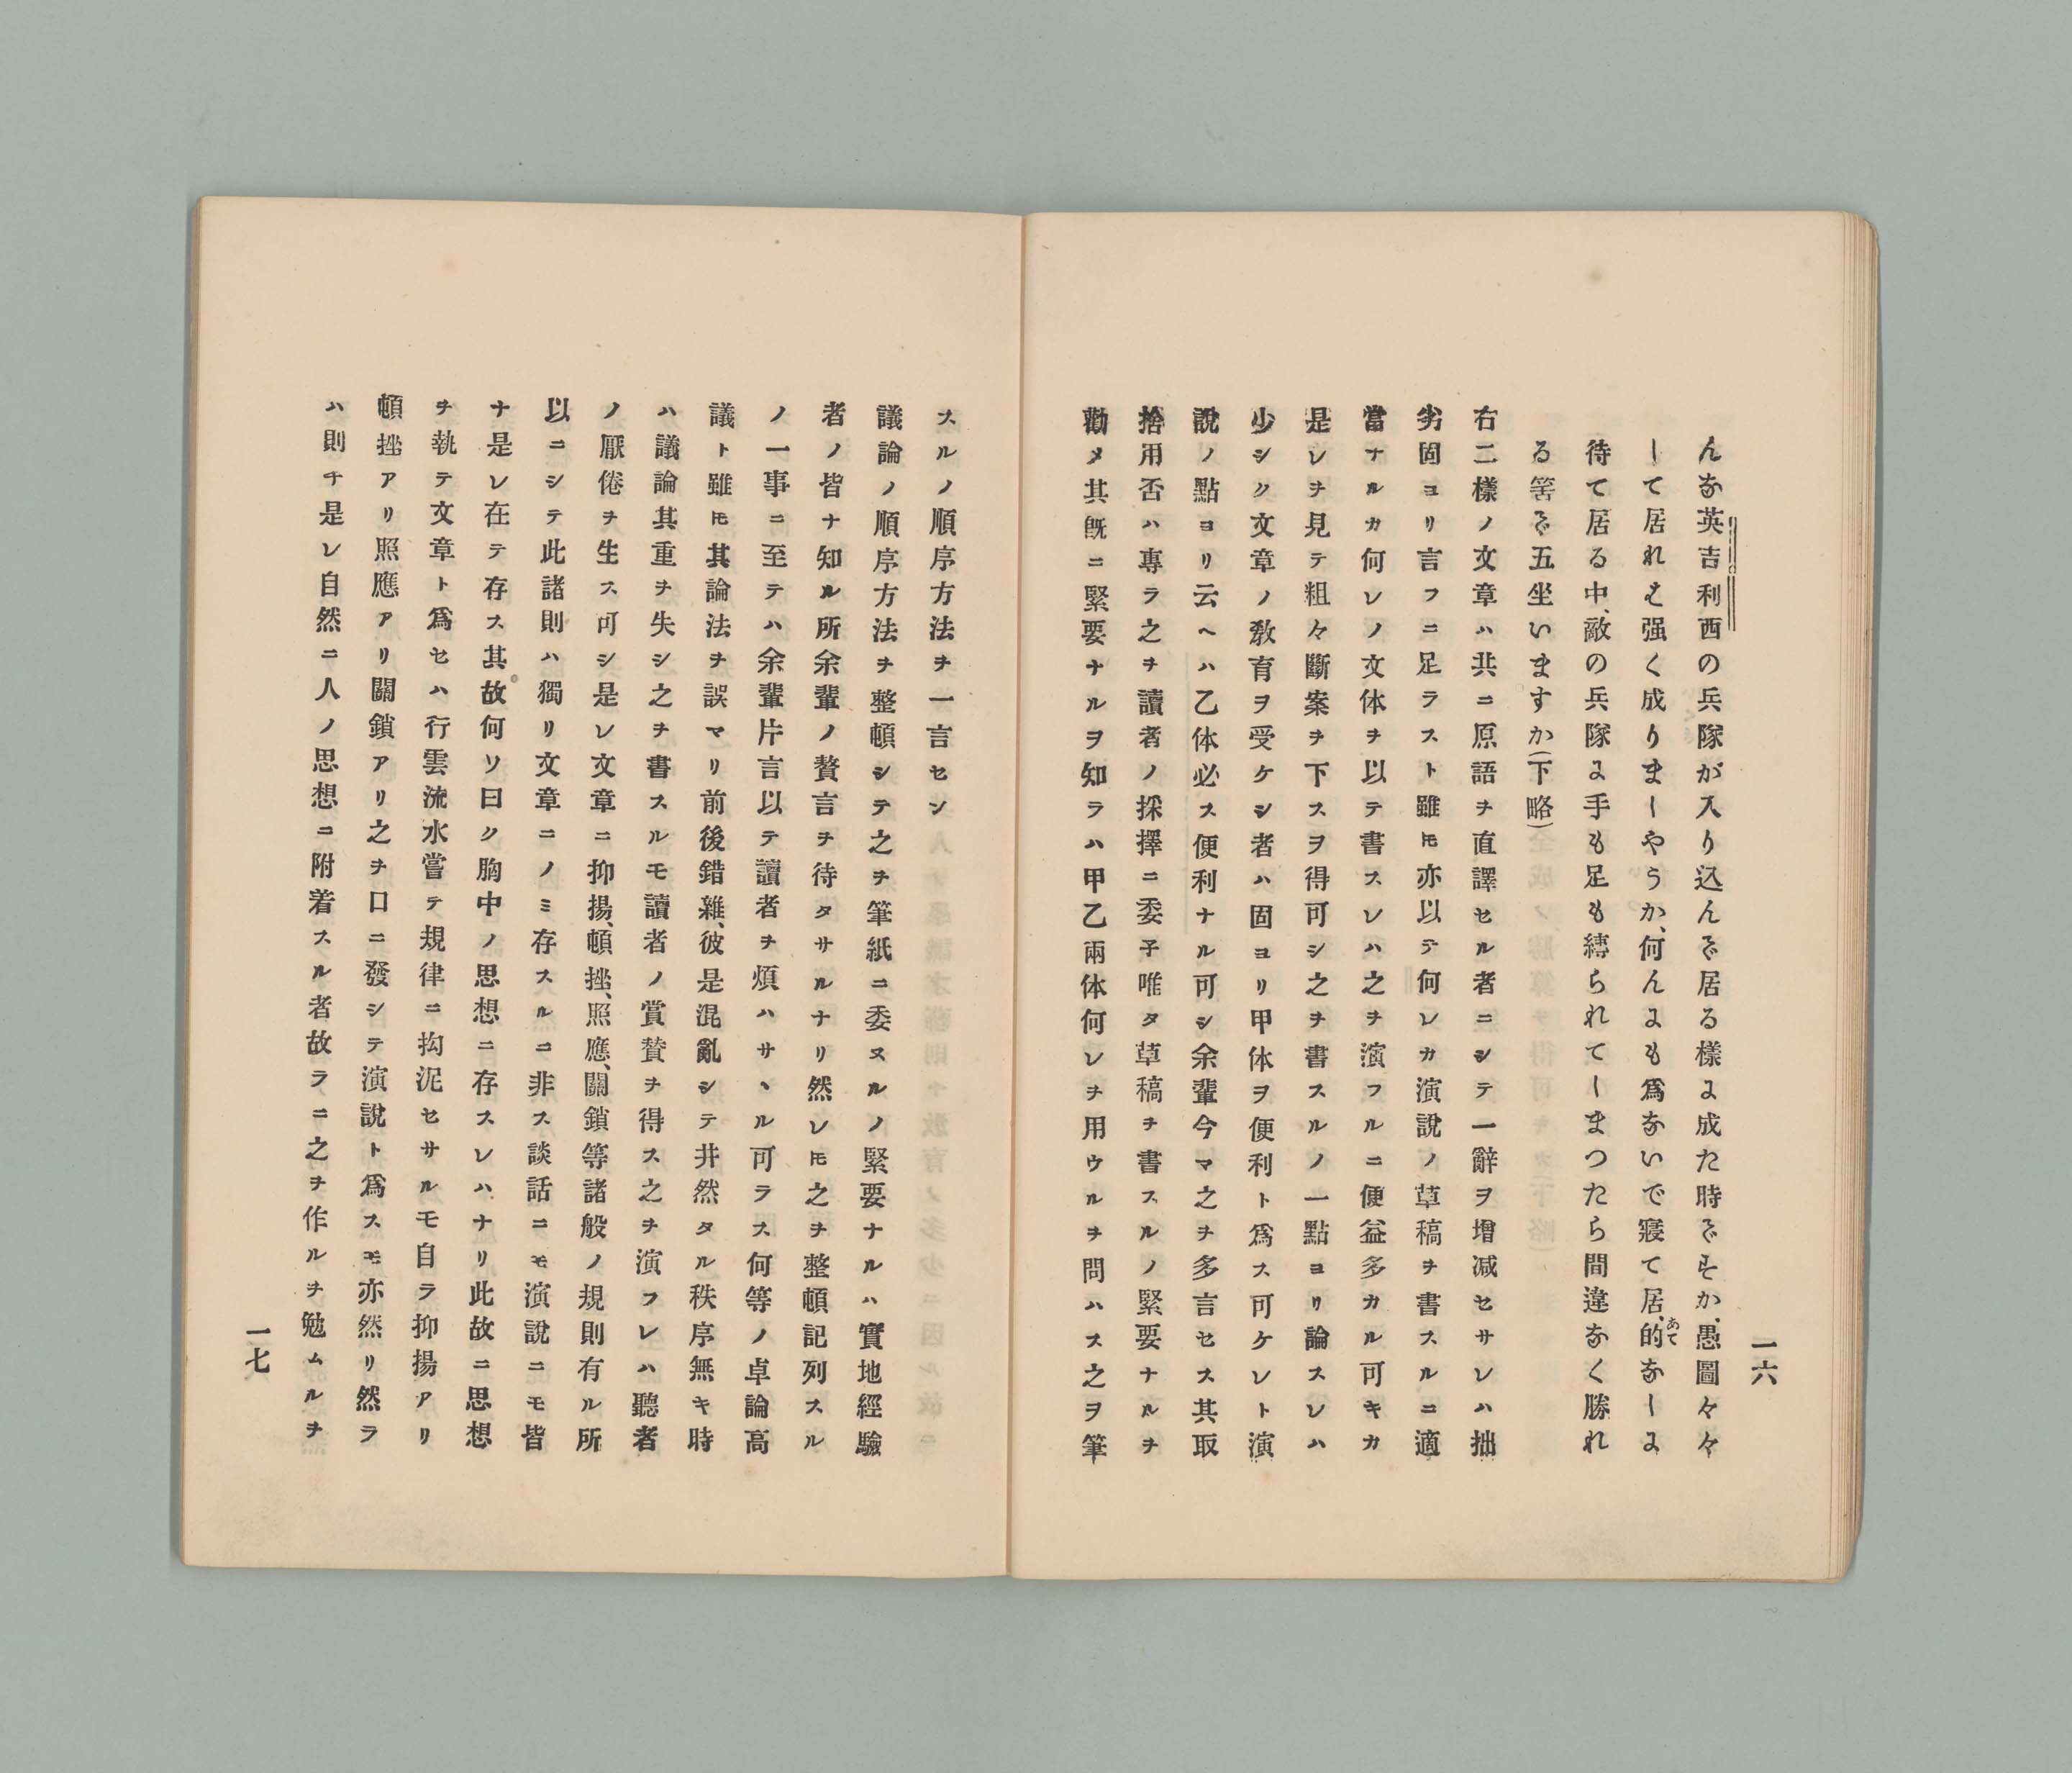 んな英吉利西の兵隊が入り込んで居る樣に成た時ですか、愚圖々々
して居れは强く成りましやうか、何んにも爲ないで寢て居、的なしに
待て居る中、敵の兵隊に手も足も縛られてしまつたら間違なく勝れ
る筈で五坐いますか(下略)
右二樣ノ文章ハ共ニ原語ヲ直譯セル者ニシテ一辭ヲ增减セサレハ拙
劣固ヨリ言フニ足ラスト雖𪜈亦以テ何レカ演說ノ草稿ヲ書スルニ適
當ナルカ何レノ文体ヲ以テ書スレハ之ヲ演フルニ便益多カル可キカ
是レヲ見テ粗々斷案ヲ下スヲ得可シ之ヲ書スルノ一點ヨリ論スレハ
少シク文章ノ敎育ヲ受ケシ者ハ固ヨリ甲体ヲ便利ト爲ス可ケレト演
說ノ點ヨリ云ヘハ乙体必ス便利ナル可シ余輩今マ之ヲ多言セス其取
捨用否ハ專ラ之ヲ讀者ノ採擇ニ委子唯タ草稿ヲ書スルノ緊要ナルヲ
勸メ其旣ニ緊要ナルヲ知ラハ甲乙兩体何レヲ用ウルヲ問ハス之ヲ筆
一六
スルノ順序方法ヲ一言セン
議論ノ順序方法ヲ整頓シテ之ヲ筆紙ニ委ヌルノ緊要ナルハ實地經驗
者ノ皆ナ知ル所余輩ノ贅言ヲ待タサルナリ然レ𪜈之ヲ整頓記列スル
ノ一事ニ至テハ余輩片言以テ讀者ヲ煩ハサヽル可ラス何等ノ卓論高
議ト雖𪜈其論法ヲ誤マリ前後錯雜、彼是混亂シテ井然タル秩序無キ時
ハ議論其重ヲ失シ之ヲ書スルモ讀者ノ賞賛ヲ得ス之ヲ演フレハ聽者
ノ厭倦ヲ生ス可シ是レ文章ニ抑揚、頓挫、照應、關鎖等諸般ノ規則有ル所
以ニシテ此諸則ハ獨リ文章ニノミ存スルニ非ス談話ニモ演說ニモ皆
ナ是レ在テ存ス其故何ソ曰ク胸中ノ思想ニ存スレハナリ此故ニ思想
ヲ執テ文章ト爲セハ行雲流水嘗テ規律ニ拘泥セサルモ自ラ抑揚アリ
頓挫アリ照應アリ關鎖アリ之ヲ口ニ發シテ演說ト爲スモ亦然リ然ラ
ハ則チ是レ自然ニ人ノ思想ニ附着スル者故ラニ之ヲ作ルヲ勉ムルヲ
一七
あて